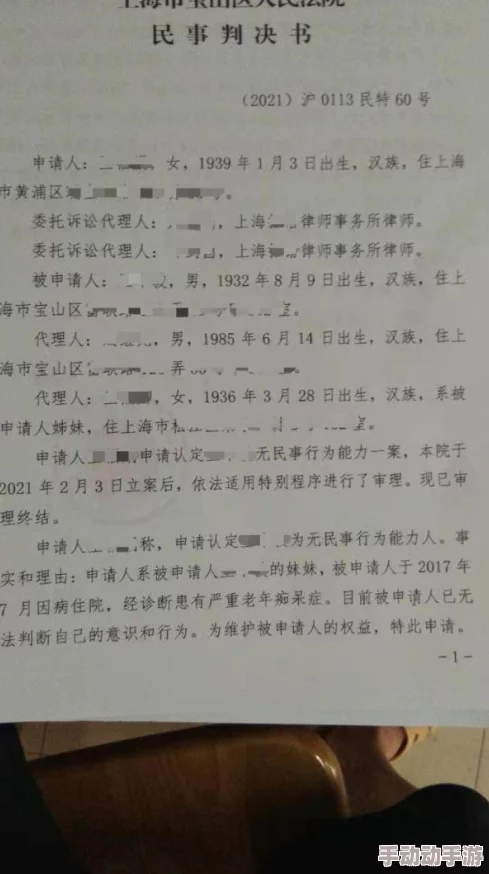 上海市宝山区人民法院
民事判决书
（2021）沪0113民特60号
申请人： 女，1939年1月3日出生，汉族，住上海
市黄浦区 号。
委托诉讼代理人： ，上海 律师事务所律师。
委托诉讼代理人： ，上海 律师事务所律师。
被申请人： ，男，1932年8月9日出生，汉族，住上
海市宝山区 。
代理人： ，男，1985年6月14日出生，汉族，住上
海市宝山区 弄
代理人： ，女，1936年3月28日出生，汉族，系被
申请人姊妹，住上海市松江 。
申请人 申请认定 无民事行为能力一案，本院于
2021年2月3日立案后，依法适用特别程序进行了审理。现已审
理终结。
申请人 称，申请认定 为无民事行为能力人。事
实和理由：申请人系被申请人 的妹妹，被申请人于2017年
7月因病住院，经诊断患有严重老年痴呆症。目前被申请人已无
法判断自己的意识和行为。为维护被申请人的权益，特此申请。
-1-
手动动手游